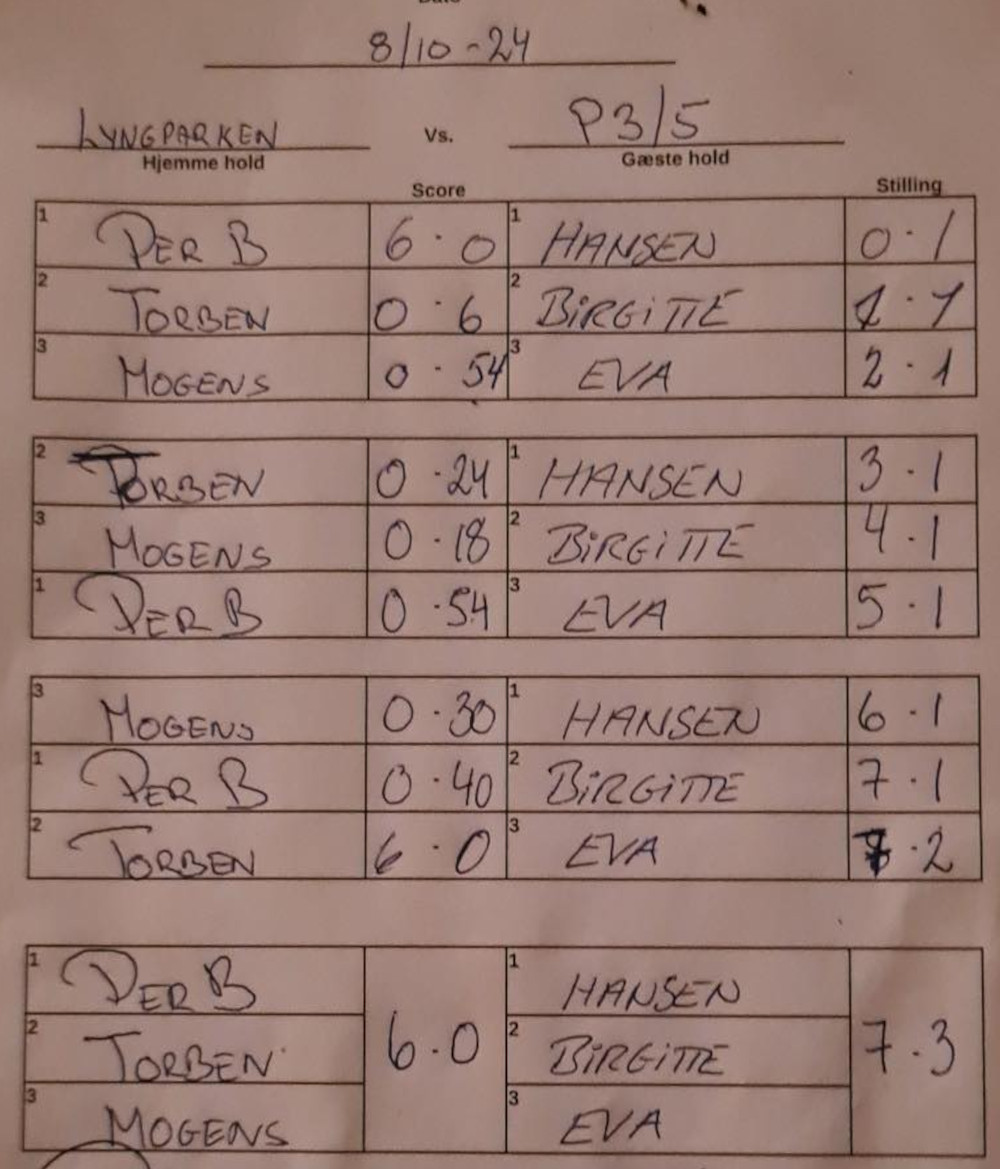 8/10-24
LYNGPARKEN Vs. P3/5
Hjemme hold Gæste hold
Score Stilling
1 PER B 6 · 0 1 HANSEN 0 · 1
2 TORBEN 0 · 6 2 BIRGITTE 1 · 1
3 MOGENS 0 · 54 3 EVA 2 · 1
2 TORBEN 0 · 24 1 HANSEN 3 · 1
3 MOGENS 0 · 18 2 BIRGITTE 4 · 1
1 PER B 0 · 54 3 EVA 5 · 1
3 MOGENS 0 · 30 1 HANSEN 6 · 1
1 PER B 0 · 40 2 BIRGITTE 7 · 1
2 TORBEN 6 · 0 3 EVA 7 · 2
1 PER B 1 HANSEN
2 TORBEN 6 · 0 2 BIRGITTE 7 · 3
3 MOGENS 3 EVA